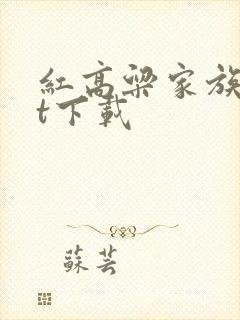 紅高粱家族
t下載
蘇芸